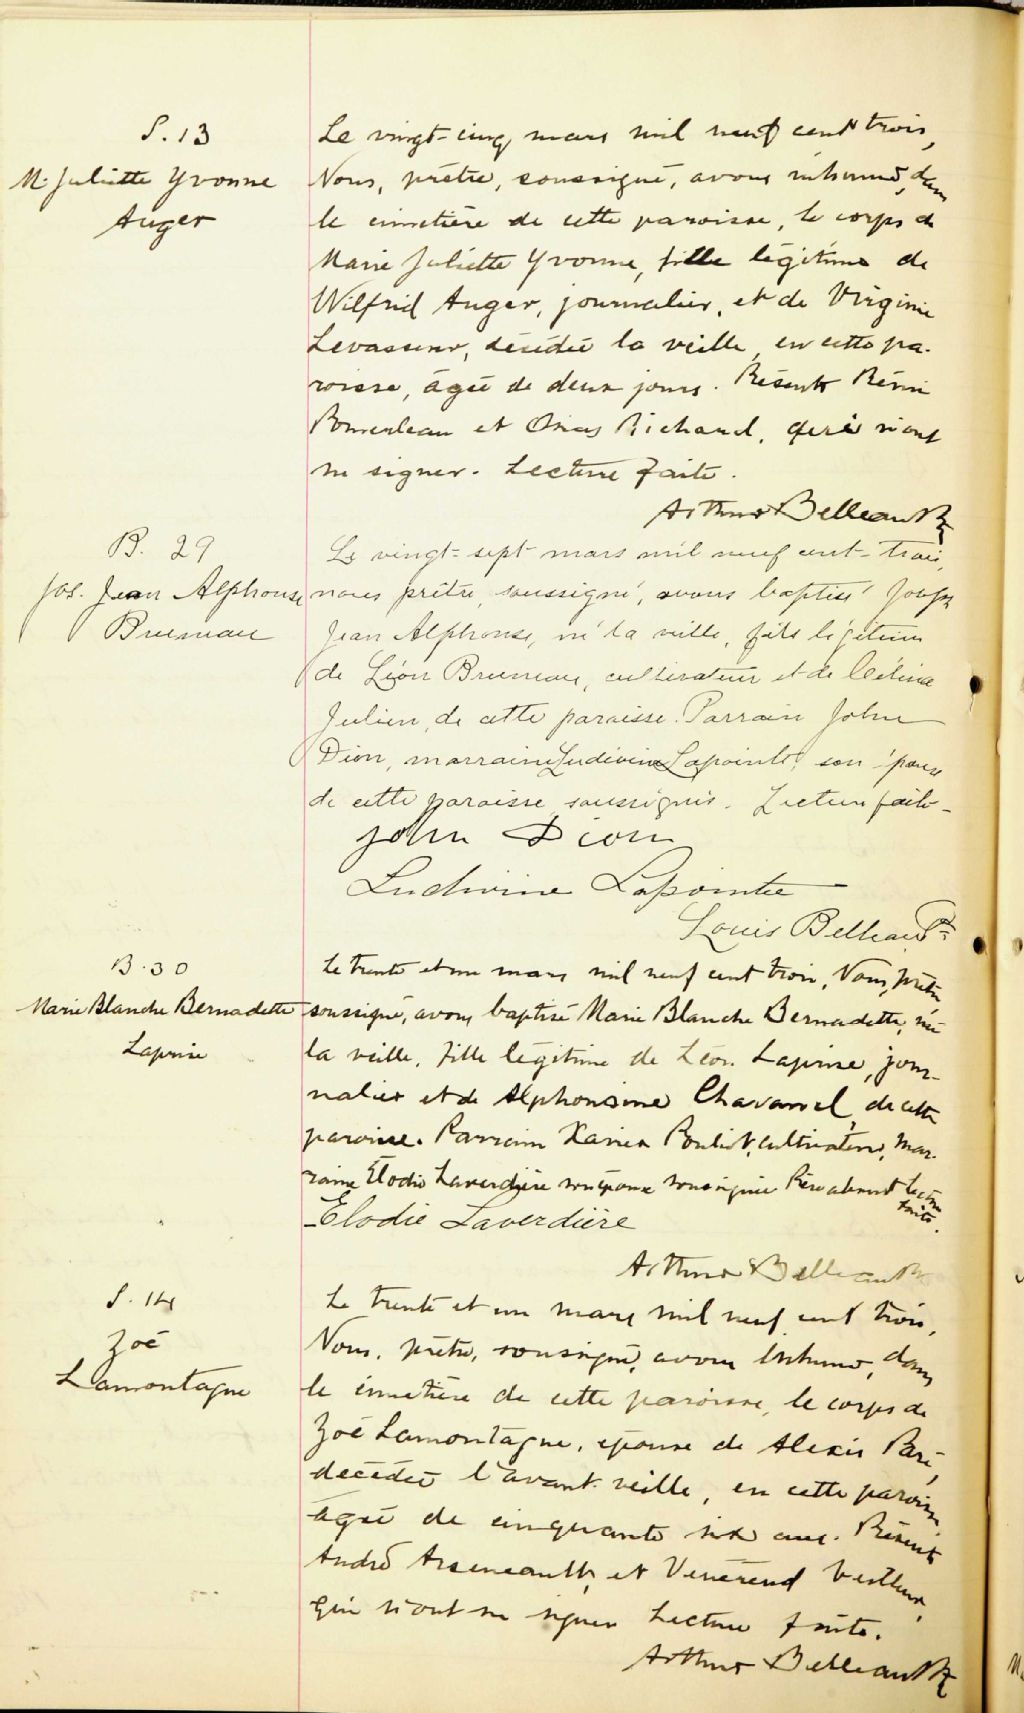 S. 13
M. Juliette Yvonne
Auger
Le vingt-cinq mars mil neuf cent trois,
Nous, prêtre, soussigné, avons inhumé, dans
le cimetière de cette paroisse, le corps de
Marie Juliette Yvonne, fille légitime de
Wilfrid Auger, journalier, et de Virginie
Levasseur, décédée la veille, en cette pa-
roisse, âgée de deux jours. Présents Rémi
Pomerleau et Richard, qui n'ont
su signer. Lecture faite.
Arthur Belleau Ptr
B. 29
Jos. Jean Alphonse
Bruneau
Le vingt-sept mars mil neuf cent-trois,
nous prêtre, soussigné, avons baptisé Joseph
Jean Alphonse, né la veille, fils légitime
de Léon Bruneau, cultivateur et de Célina
Julien, de cette paroisse. Parrain John
Dion, marraine Ludivine Lapointe, son épouse
de cette paroisse soussignés. Lecture faite-
John Dion
Ludivine Lapointe
Louis Belleau Ptr
B. 30
Marie Blanche Bernadette
Laprise
Le trente et un mars mil neuf cent trois, Nous, prêtre
soussigné, avons baptisé Marie Blanche Bernadette, née
la veille, fille légitime de Léon Laprise, jour-
nalier et de Alphonsine Chavanel, de cette
paroisse. Parrain Xavier Pouliot, cultivateur, mar-
raine Elodie Laverdière son épouse soussignée Lecture
faite.
Elodie Laverdière
Arthur Belleau Ptr
S. 14
Zoé
Lamontagne
Le trente et un mars mil neuf cent trois,
Nous, prêtre, soussigné, avons inhumé, dans
le cimetière de cette paroisse, le corps de
Zoé Lamontagne, épouse de Alexis Paré,
décédée l'avant-veille, en cette paroisse,
âgée de cinquante six ans. Présents
André Arseneault, et Vénérend
qui n'ont su signer Lecture faite.
Arthur Belleau Ptr